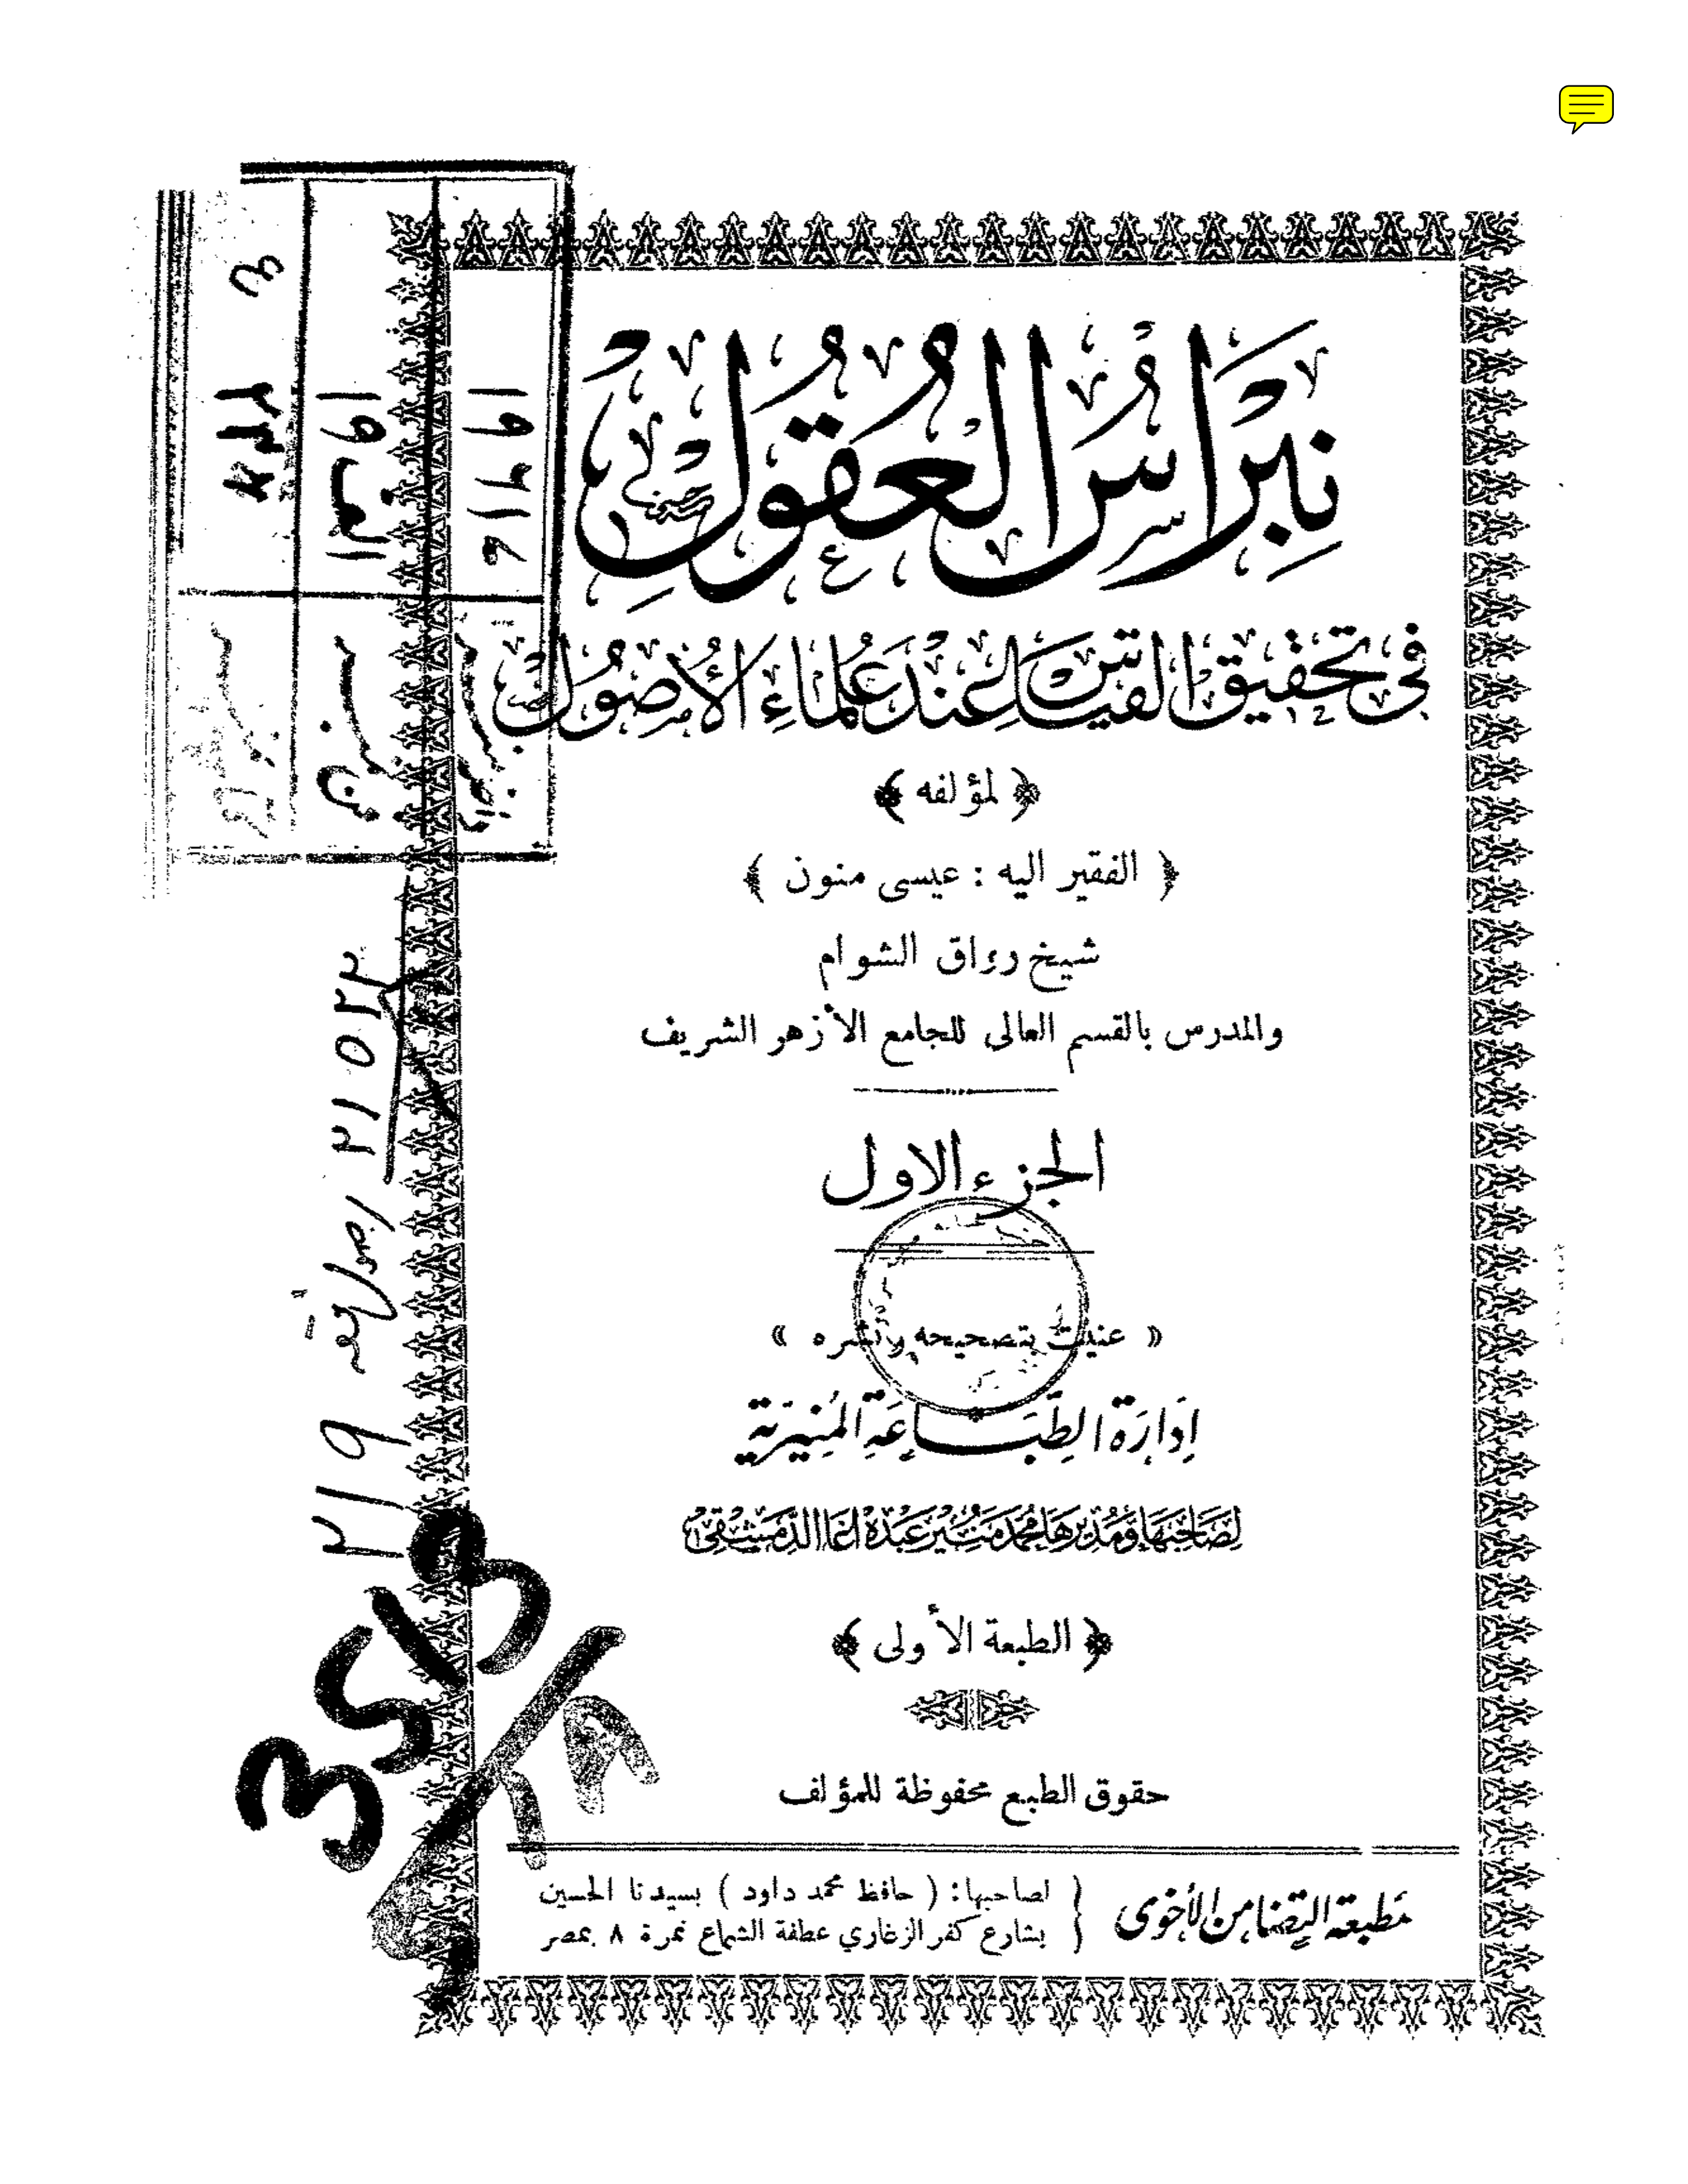 نِبْرَاسُ العُقُولِ
فى تحقيق القياس عند علماء الأصول
﴿ لمؤلفه ﴾
﴿ الفقير اليه : عيسى منون ﴾
شيخ رواق الشوام
والمدرس بالقسم العالى للجامع الأزهر الشريف
الجزء الاول
« عنيت بتصحيحه ونشره »
إدَارَة الطِّبَاعَةِ المُنِيْرِيَّة
لصَاحِبهَا وَمُدِيرهَا محمد مُنير عَبْدهُ اغَا الدِّمَشْقِى
﴿ الطبعة الأولى ﴾
حقوق الطبع محفوظة للمؤلف
مَطبعة التضامن الأخوى
لصاحبها: ( حافظ محمد داود ) بسيدنا الحسين
بشارع كفر الزغاري عطفة الشماع نمرة ٨ بمصر
٢١٥٢٢
٢١٩
3513